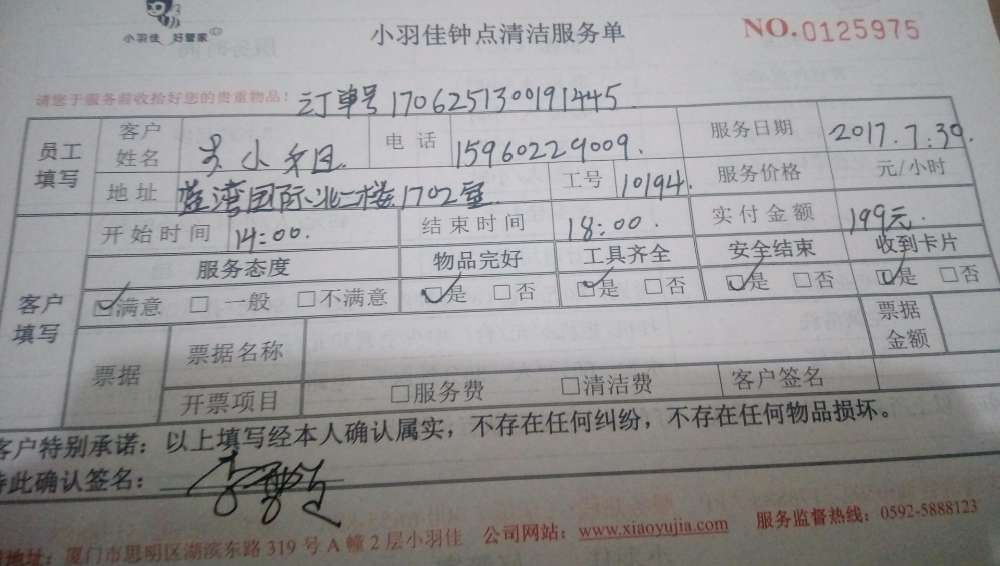 小羽佳 好管家
小羽佳钟点清洁服务单
NO.0125975
请您于服务前收拾好您的贵重物品!
订单号1706251300191445
员工填写 客户姓名 小姐 电话 15960229009. 服务日期 2017.7.30.
地址 蓝湾国际北二楼1702室 工号 10194. 服务价格 元/小时
开始时间 14:00. 结束时间 18:00. 实付金额 199元.
客户填写 服务态度 物品完好 工具齐全 安全结束 收到卡片
☑满意 □一般 □不满意 ☑是 □否 ☑是 □否 ☑是 □否 ☑是 □否
票据 票据名称 票据金额
开票项目 □服务费 □清洁费 客户签名
客户特别承诺：以上填写经本人确认属实，不存在任何纠纷，不存在任何物品损坏。
特此确认签名：
地址：厦门市思明区湖滨东路 319 号 A 幢 2 层小羽佳 公司网站：www.xiaoyujia.com 服务监督热线：0592-5888123